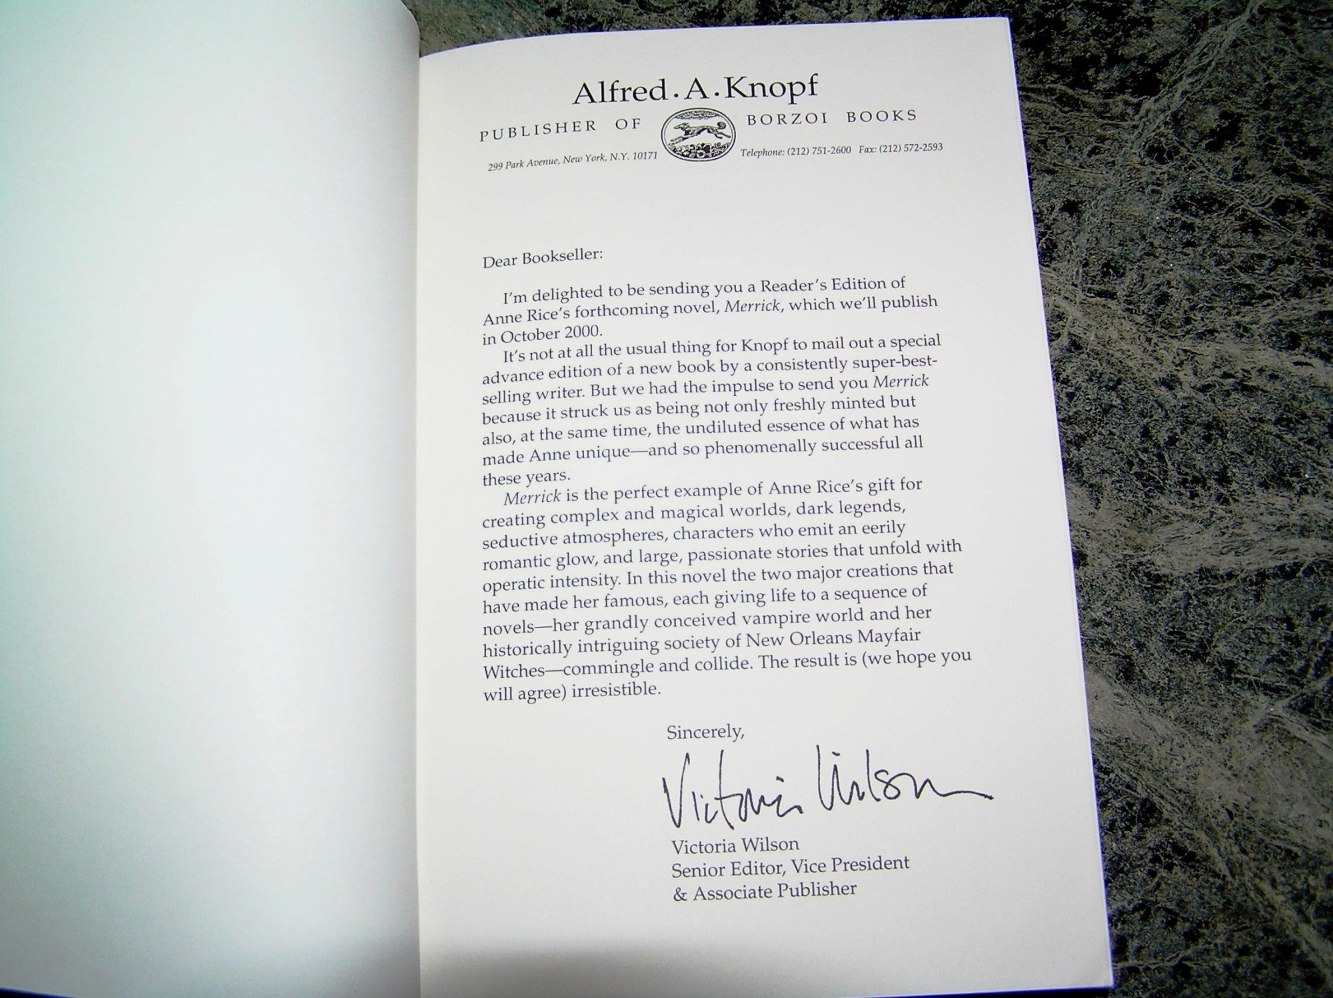 Alfred · A · Knopf
PUBLISHER OF BORZOI BOOKS
299 Park Avenue, New York, N.Y. 10171 Telephone: (212) 751-2600 Fax: (212) 572-2593
Dear Bookseller:
I'm delighted to be sending you a Reader's Edition of
Anne Rice's forthcoming novel, Merrick, which we'll publish
in October 2000.
It's not at all the usual thing for Knopf to mail out a special
advance edition of a new book by a consistently super-best-
selling writer. But we had the impulse to send you Merrick
because it struck us as being not only freshly minted but
also, at the same time, the undiluted essence of what has
made Anne unique—and so phenomenally successful all
these years.
Merrick is the perfect example of Anne Rice's gift for
creating complex and magical worlds, dark legends,
seductive atmospheres, characters who emit an eerily
romantic glow, and large, passionate stories that unfold with
operatic intensity. In this novel the two major creations that
have made her famous, each giving life to a sequence of
novels—her grandly conceived vampire world and her
historically intriguing society of New Orleans Mayfair
Witches—commingle and collide. The result is (we hope you
will agree) irresistible.
Sincerely,
Victoria Wilson
Victoria Wilson
Senior Editor, Vice President
& Associate Publisher